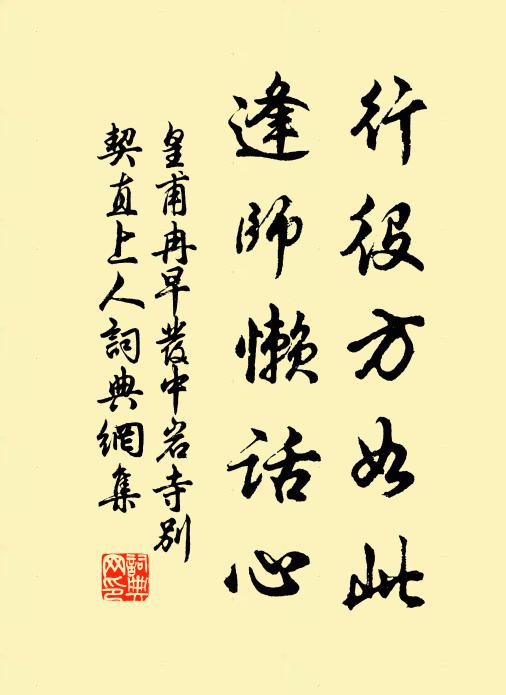 行役方如此
逢師懶話心
皇甫冉早發中岩寺別
契直上人詞典網集
詞典
网印